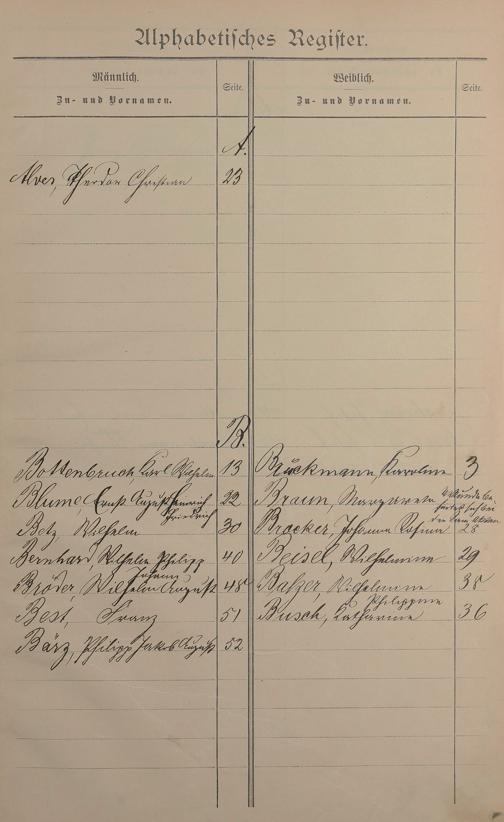 Alphabetisches Register.
Männlich.
Zu- und Vornamen.
Seite.
Weiblich.
Zu- und Vornamen.
Seite.
A.
Alver, Theodor Christian 23
B.
Bottenbruch, Karl Wilhelm 13
Brückmann, Karoline 3
Blume, Ernst August Heinrich 22
Friedrich
Braun, Margareta
Betz, Wilhelm 30
Brocker, Johanna 28
Bernhard, Wilhelm Philipp 40
Johann
Beisel, Wilhelmine 29
Bröder, Wilhelm August 48
Balzer, Wilhelmine 35
Philippine
Best, Franz 51
Busch, Katharine 36
Bärz, Philipp Jakob August 52